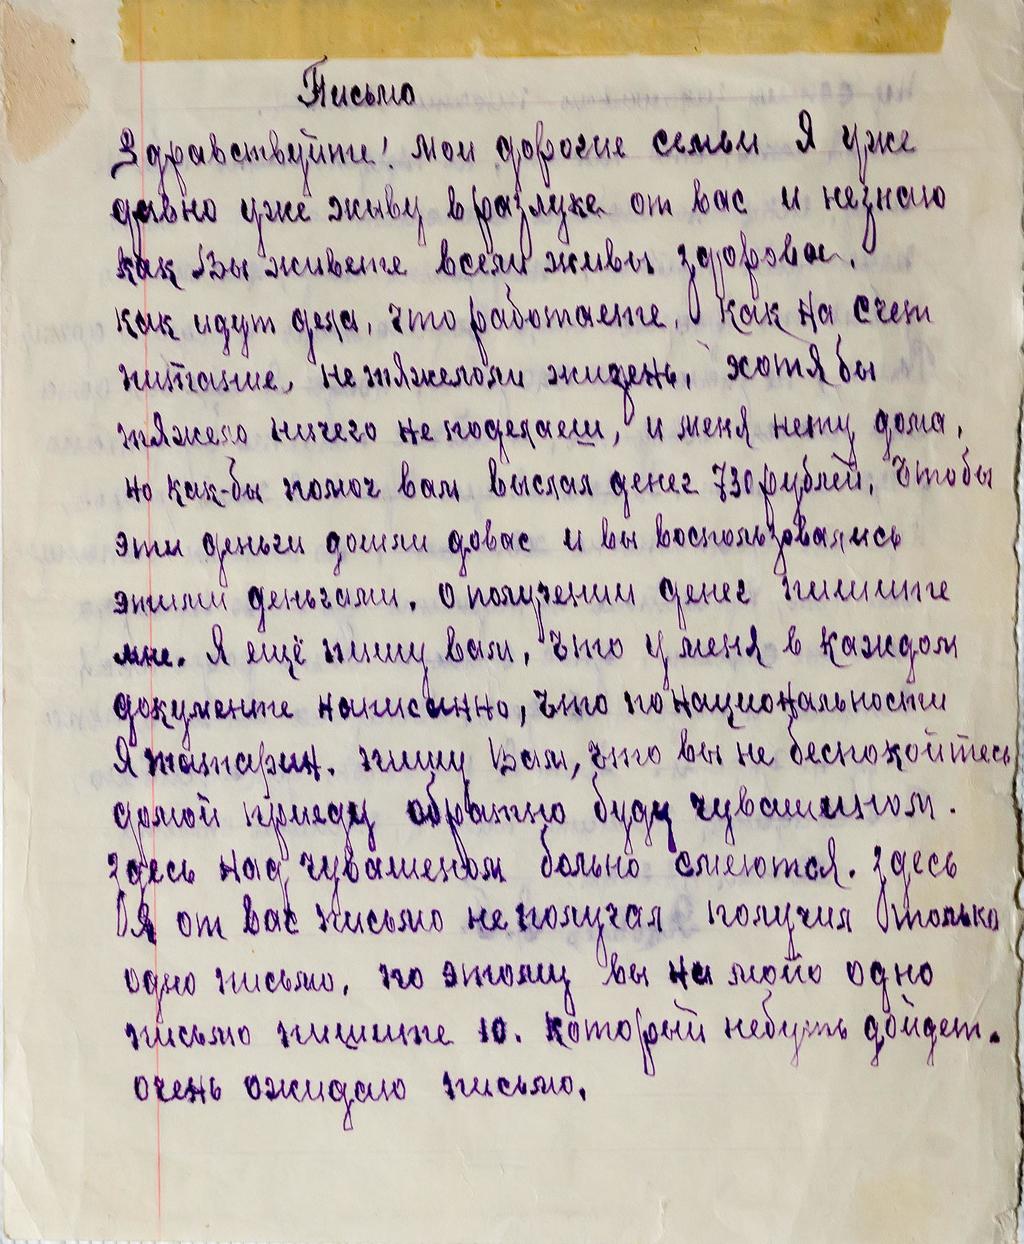 Письмо
Здравствуйте! мои дорогие семьи Я уже
давно уже живу в разлуке от вас и незнаю
как Вы живете всели живы здоровы.
как идут дела, что работаете. как на счет
питание, не тяжелоли жизень, хотя бы
тяжело ничего не поделаеш, и меня нету дома,
но как-бы помоч вам выслал денег 730 рублей. Чтобы
эти деньги дошли довас и вы воспользовались
этими деньгами. о получении денег пишите
мне. Я ещё пишу вам, что у меня в каждом
документе написанно, что по национальности
Я татарин. пишу Вам, что вы не беспокойтесь
домой приеду обратно буду чувашином.
здесь над чувашеном больно смеются. здесь
Я от вас письмо не получал получил только
одно письмо, по этому вы на мойо одно
письмо пишите 10. который небуть дойдет.
очень ожидаю письмо.